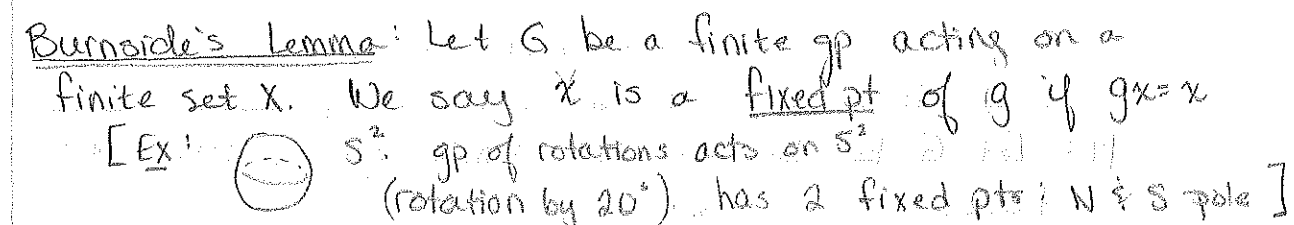 Burnside's Lemma: Let G be a finite gp acting on a
finite set X. We say x is a fixed pt of g if gx=x
[Ex: S². gp of rotations acts on S²
(rotation by 20°) has 2 fixed pts: N & S pole]